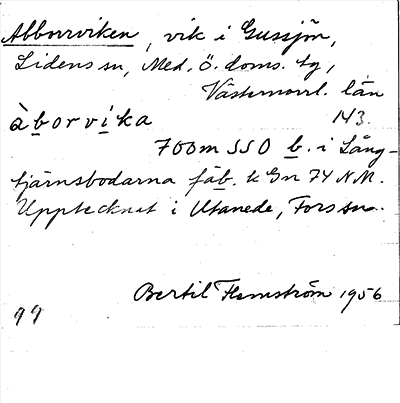 Abborrviken, vik i Gussjön,
Lidens sn, Med. Ö. doms. tg,
Västernorrl. län
143.
àborvíka
700 m SSO b. i Lång-
tjärnsbodarna fäb. k Gn 74 NM.
Upptecknat i Utanede, Fors sn.
Bertil Flemström 1956
99